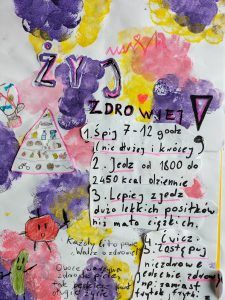 ŻYJ
ZDROWIEJ!
1. Śpij 7-12 godz
(nie dłużej i krócej)
2. Jedz od 1600 do
2450 kcal dziennie
3. Lepiej zjedz
dużo lekkich posiłków
niż mało ciężkich.
4. Ćwicz.
5. Zastępuj
niezdrowe
jedzenie zdrowym
np. zamiast
frytek
Każdy Ci to powie
Owoce
tak